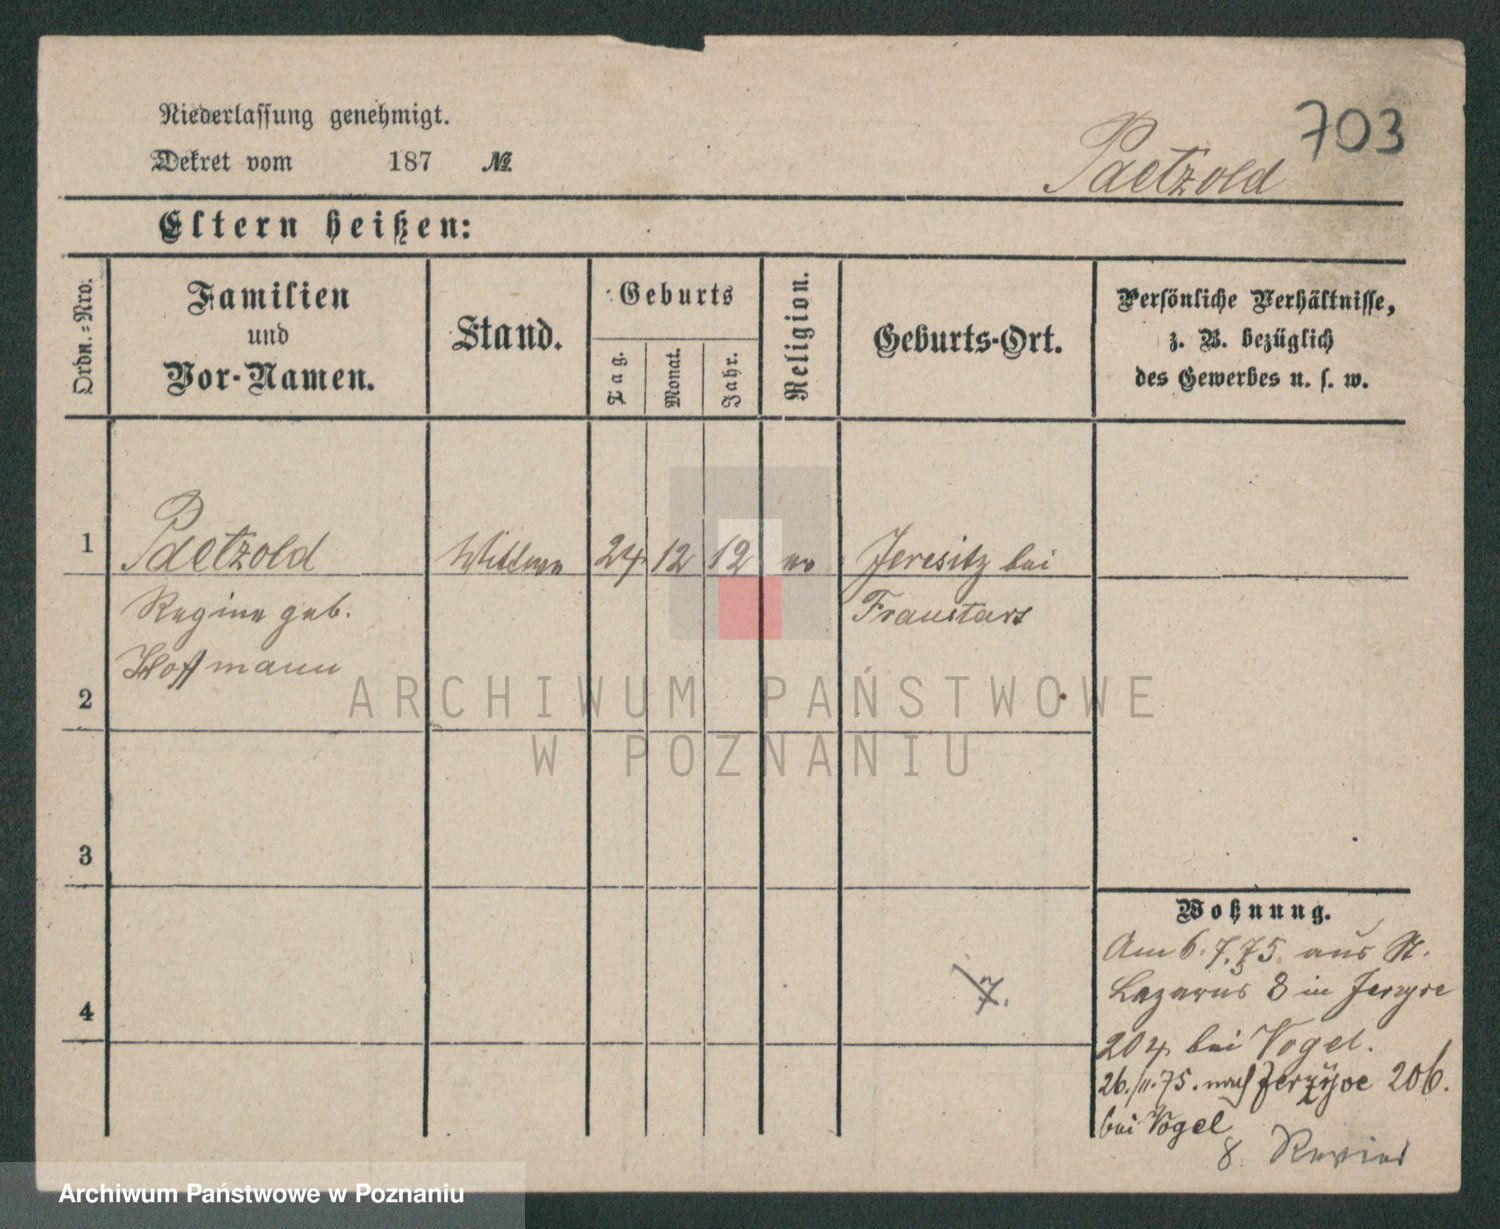 703
Niederlassung genehmigt.
Dekret vom 187 №.
Paetzold
Eltern heißen:
Ordn.-Nro.
Familien
und
Vor-Namen.
Stand.
Geburts
Tag.
Monat.
Jahr.
Religion.
Geburts-Ort.
Persönliche Verhältnisse,
z. B. bezüglich
des Gewerbes u. s. w.
1 Paetzold Wittwe 24 12 12 ev Jeresitz bei
Regine geb. Fraustadt
Hoffmann
2
ARCHIWUM PAŃSTWOWE
W POZNANIU
3
4
7.
Wohnung.
Am 6.7.75. aus St.
Lazarus 8 in Jerzyce
204 bei Vogel.
26./11.75. nach Jerzyce 206.
bei Vogel
8. Revier
Archiwum Państwowe w Poznaniu